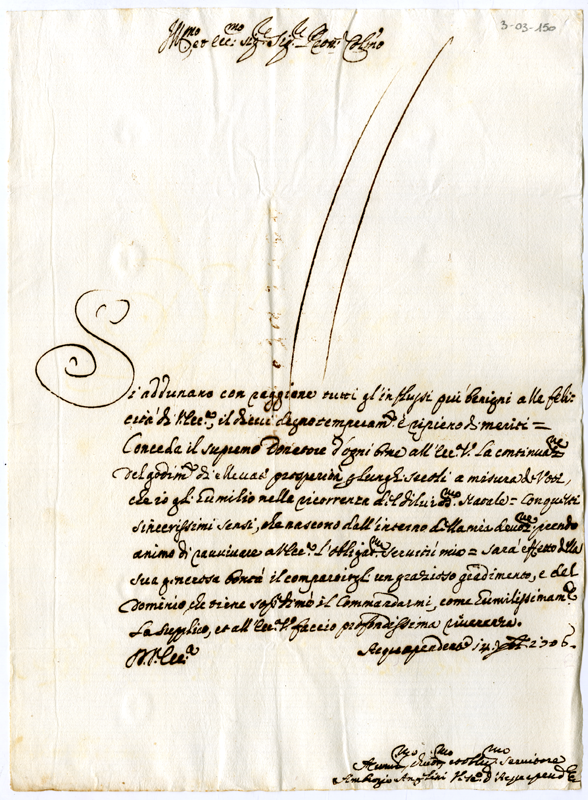 3-03-150
Ill.mo et ecc.mo Sig.re Sig.re Pron. Col.mo
Si addunano con raggione tutti gl'influssi più benigni alla feli-
cità di V. Ecc.za, il di cui degno temperam.to è ripieno di meriti =
Conceda il supremo Donatore d'ogni bene all'Ecc.za V.a la continuaz.ne
del godim.to di prosperità, e lunghi secoli a misura de Voti,
che io gli humilio nella ricorrenza del S.mo Natale = Con questi
sincerissimi sensi, che nascono dall'interno della mia devoz.ne, prendo
animo di ravvivare all'Ecc.za V. l'obligat.ma servitù mia = sarà effetto della
sua generosa bontà il compartirgli un grazioso gradimento, e del
Dominio, che tiene sop.a di me il Commandarmi, come humilissimam.te
La supplico, et all'Ecc.za V.a faccio profondissima riverenza.
Di V. Ecc.za
Acquapendente 14
Humil.mo Devot.mo et oblig.mo Servitore
Ambrogio Angelini Vesc.o d'Acquapend.te